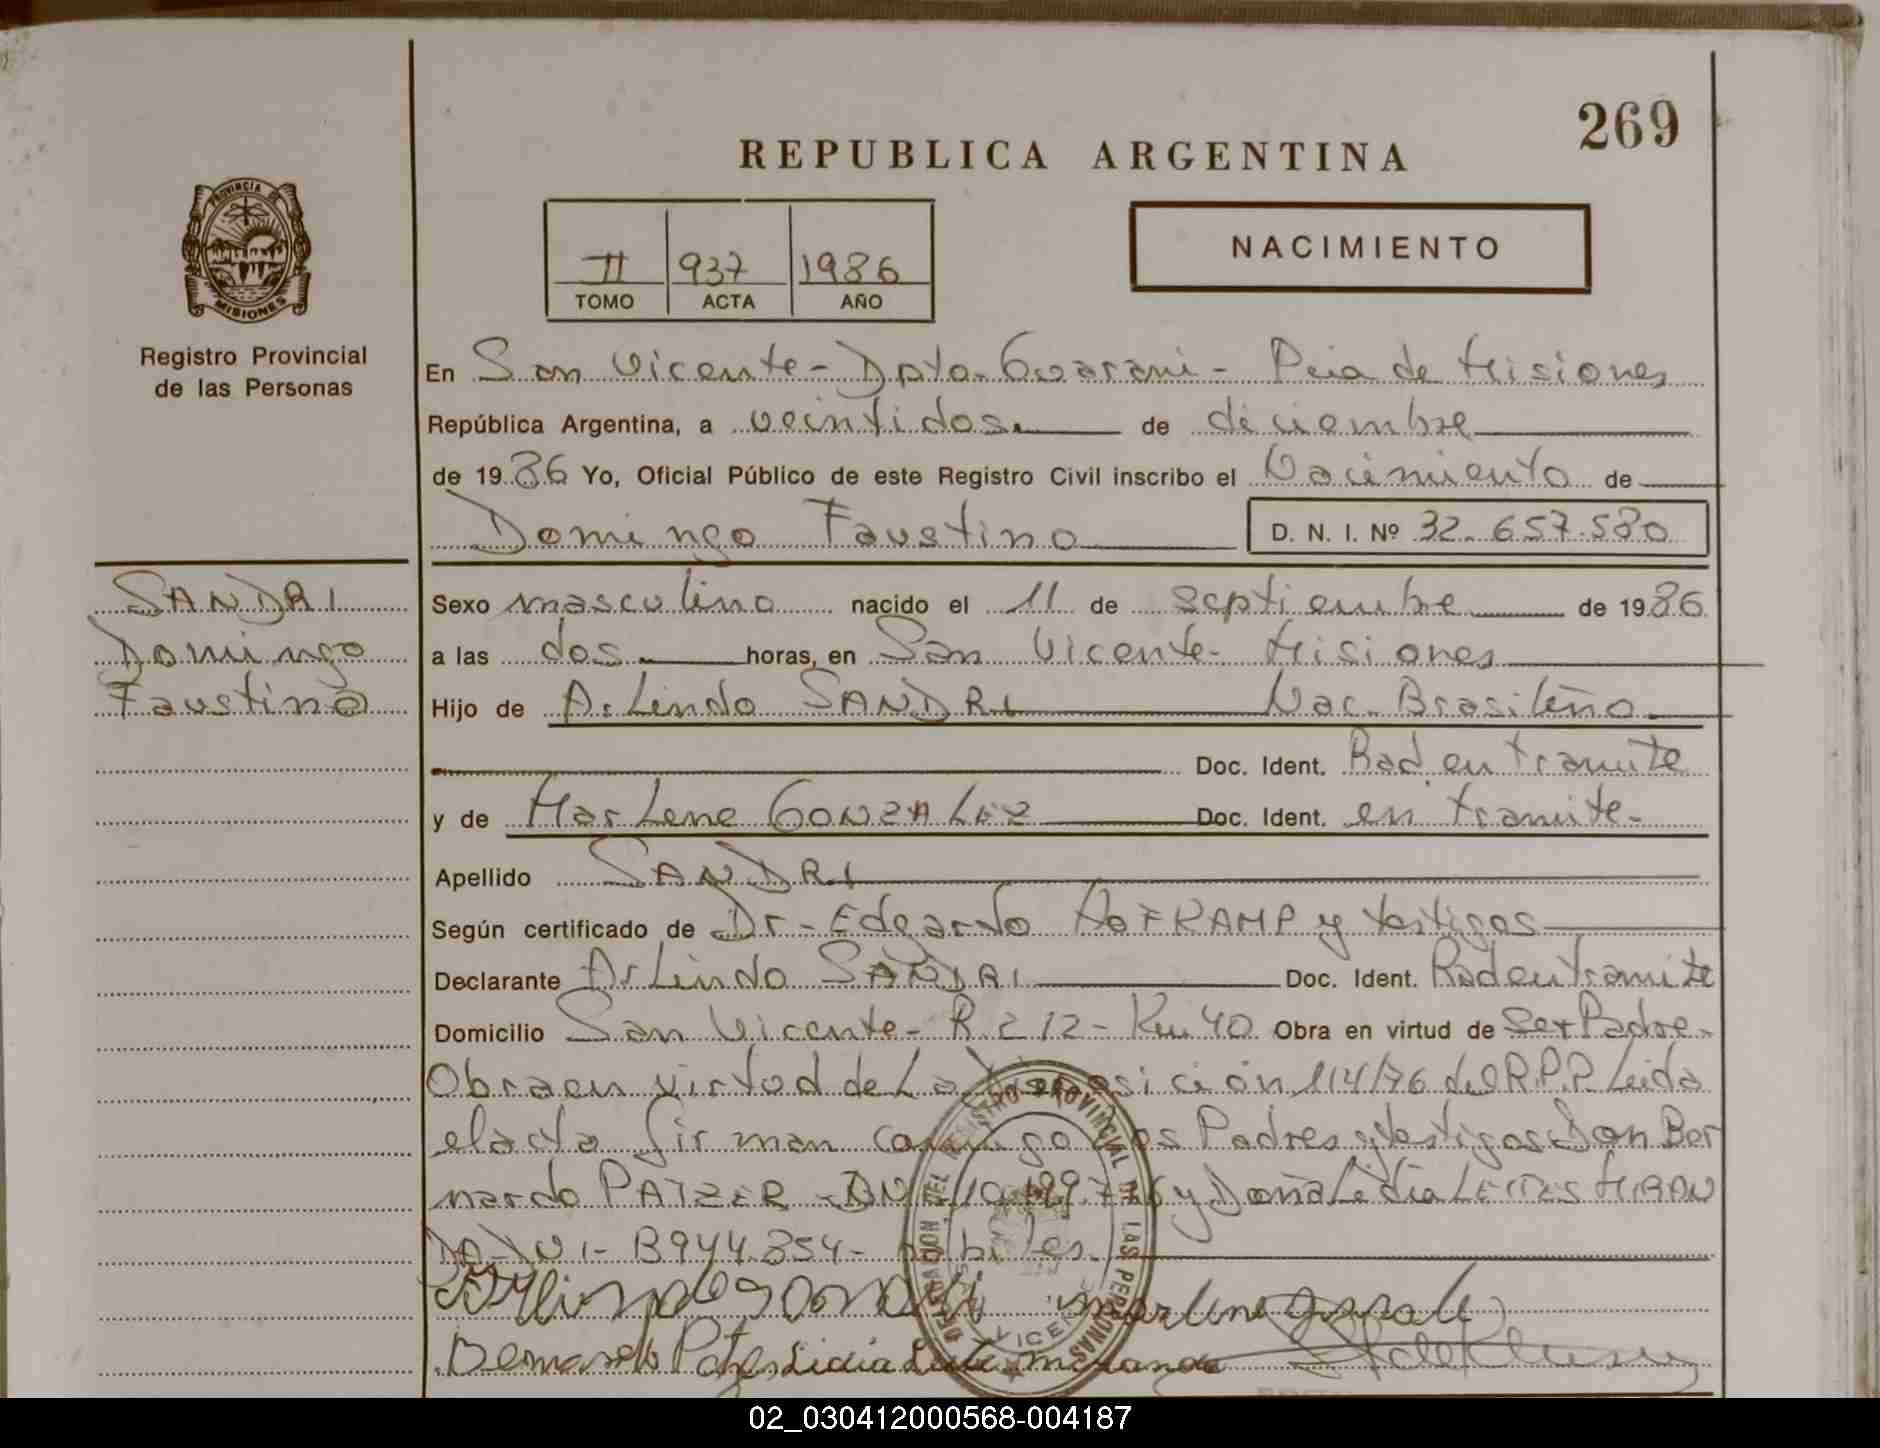 269
REPUBLICA ARGENTINA
PROVINCIA DE
MISIONES
II 937 1986
TOMO ACTA AÑO
NACIMIENTO
Registro Provincial
de las Personas
En San Vicente - Dpto. Guarani - Pcia de Misiones
República Argentina, a veintidos de diciembre
de 1986 Yo, Oficial Público de este Registro Civil inscribo el Nacimiento de
Domingo Faustino D. N. I. Nº 32.657.580
SANDRI
Domingo
Faustino
Sexo masculino nacido el 11 de septiembre de 1986
a las dos horas, en San Vicente - Misiones
Hijo de Arlindo SANDRI Nac. Brasileño
Doc. Ident. Rad. en tramite
y de Marlene GONZALEZ Doc. Ident. en tramite -
Apellido SANDRI
Según certificado de Dr - Edgardo y testigos
Declarante Arlindo SANDRI Doc. Ident. Rad en tramite
Domicilio San Vicente - R 212 - Km 40 Obra en virtud de Ser Padre -
Obra en virtud de La Disposición 114/76 del R.P.P. Leida
el acta firman conmigo los Padres y testigos Don Ber
nardo PATZER - y Doña Ledia LEITES MIRAN
DA - DNI - 3944.354 - habiles.
Marlene
Bernardo Lidia Miranda
DELEGACION DEL REGISTRO PROVINCIAL DE LAS PERSONAS
VICENTE
02_030412000568-004187